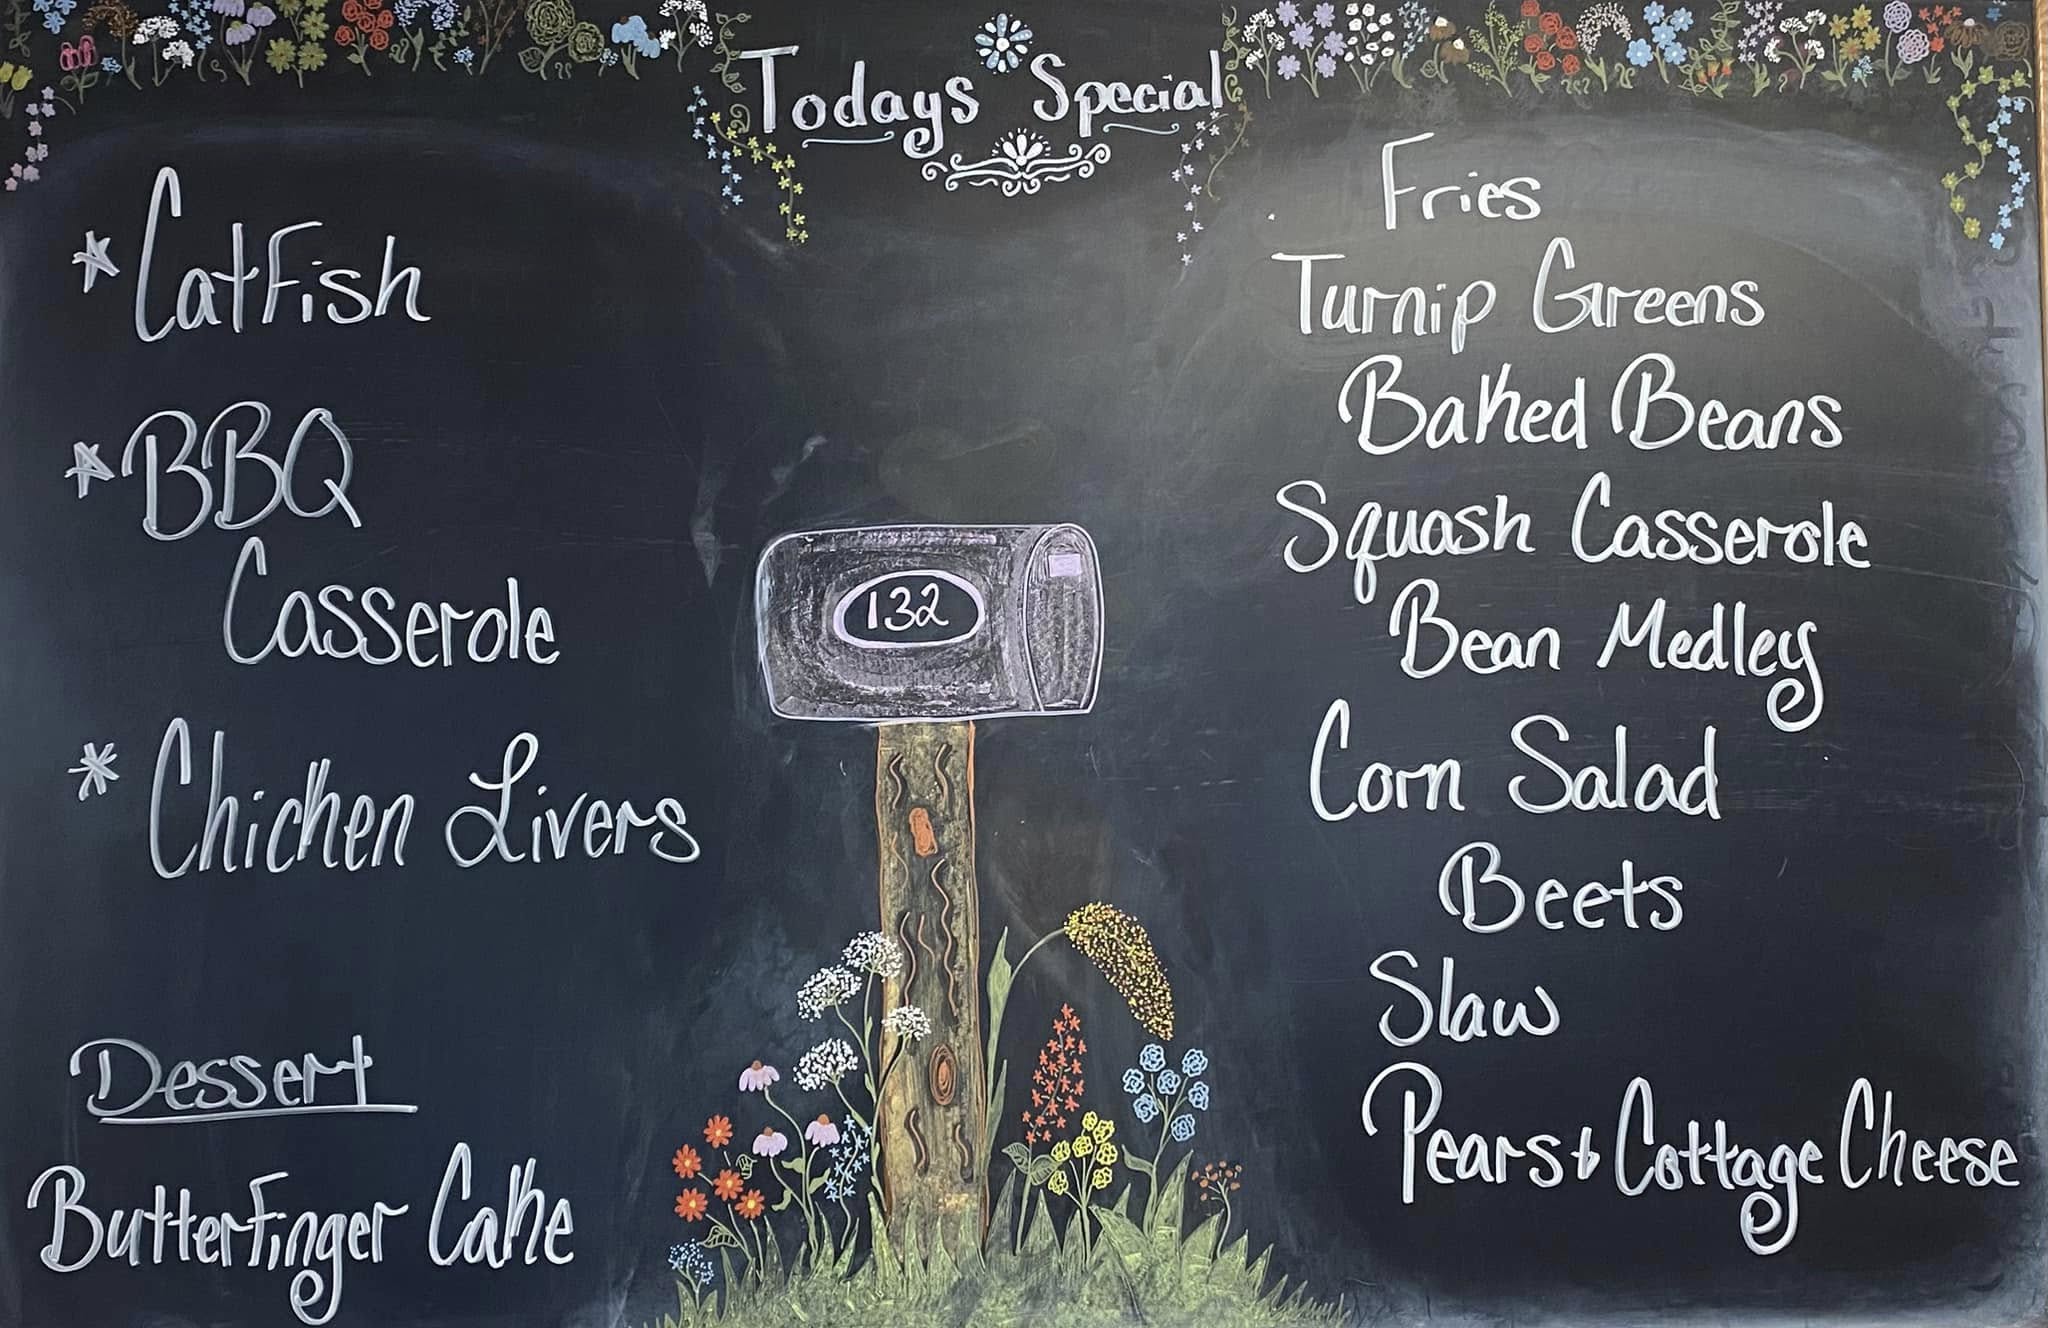 Todays Special
* Catfish
* BBQ
Casserole
* Chicken Livers
Dessert
Butterfinger Cake
132
Fries
Turnip Greens
Baked Beans
Squash Casserole
Bean Medley
Corn Salad
Beets
Slaw
Pears & Cottage Cheese